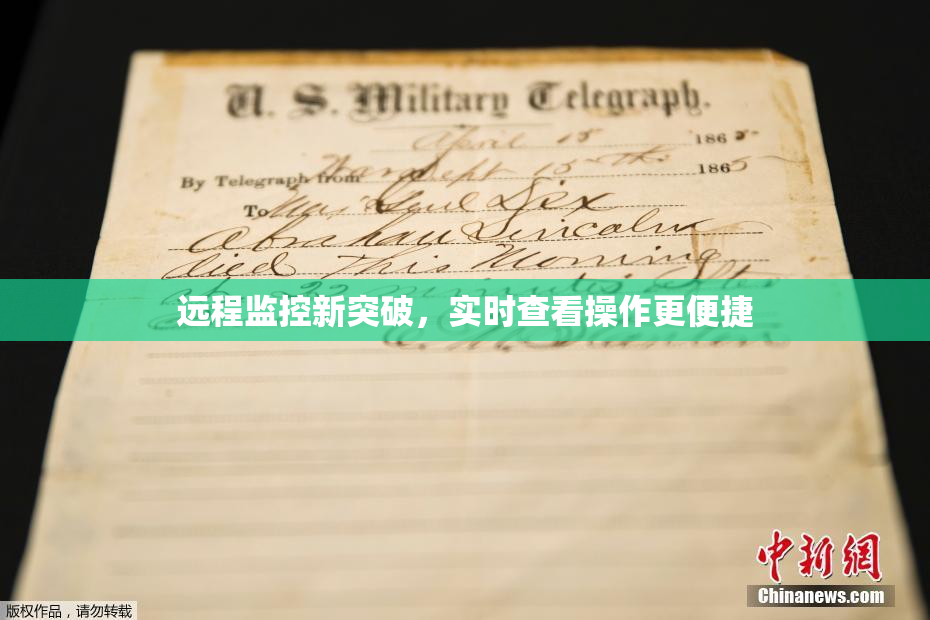 U. S. Military Telegraph.
April 15 1865
By Telegraph from War Dept 15th 1865
To Maj Genl Dix
Abraham Lincoln
died This Morning
at 22 minutes after
远程监控新突破，实时查看操作更便捷
E. M. Stanton
中新网
Chinanews.com
版权作品，请勿转载